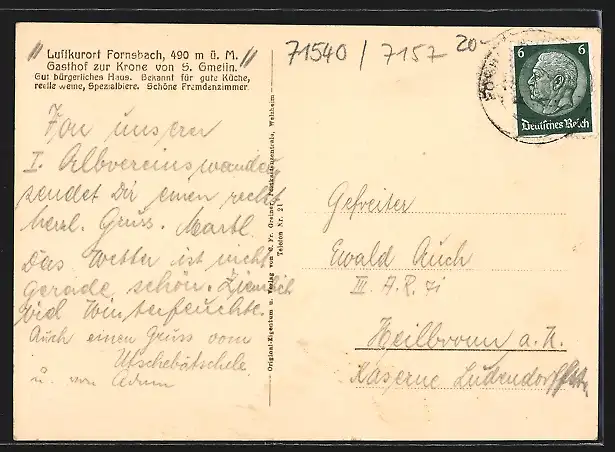 Luftkurort Fornsbach, 490 m ü. M.
Gasthof zur Krone von S. Gmelin.
Gut bürgerliches Haus. Bekannt für gute Küche,
reelle Weine, Spezialbiere. Schöne Fremdenzimmer
71540 / 7157
20
6 6
Deutsches Reich
Von unserer
I. Albvereinswander
sendet Dir einen recht
herzl. Gruss. Martl
Das Wetter ist nicht
gerade schön. Ziemlich
viel Winterfeuchte.
Auch einen Gruss vom
u. von
Original-Eigentum u. Verlag von C. Fr. Greiner, Postkartenzentrale, Welzheim
Telefon Nr. 21
Gefreiter
Ewald Auch
III. A.R. 71
Heilbronn a. N.
Kaserne Ludendorffstr